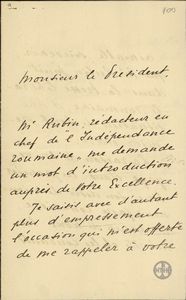 100
Monsieur le Président,
Mr Rubin, rédacteur en
chef de "l'Indépendance
roumaine" me demande
un mot d'introduction
auprès de Votre Excellence.
Je saisis avec d'autant
plus d'empressement
l'occasion qui m'est offerte
de me rappeler à votre